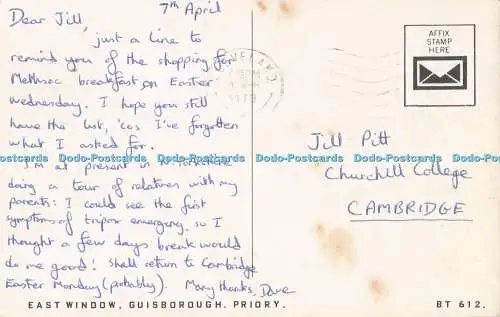 7th April
Dear Jill,
just a line to
remind you of the shopping for
Methsoc breakfast on Easter
Wednesday. I hope you still
have the list, 'cos I've forgotten
what I asked for.
I'm at present in Yorkshire
doing a tour of relatives with my
parents: I could see the first
symptoms of tripos emerging, so I
thought a few days break would
do me good! Shall return to Cambridge
Easter Monday (probably). Many thanks, Dave
AFFIX
STAMP
HERE
Jill Pitt
Churchill College
CAMBRIDGE
Dodo-Postcards Dodo-Postcards Dodo-Postcards Dodo-Postcards Dodo-Postcards Dodo-Postcards
EAST WINDOW, GUISBOROUGH. PRIORY. BT 612.